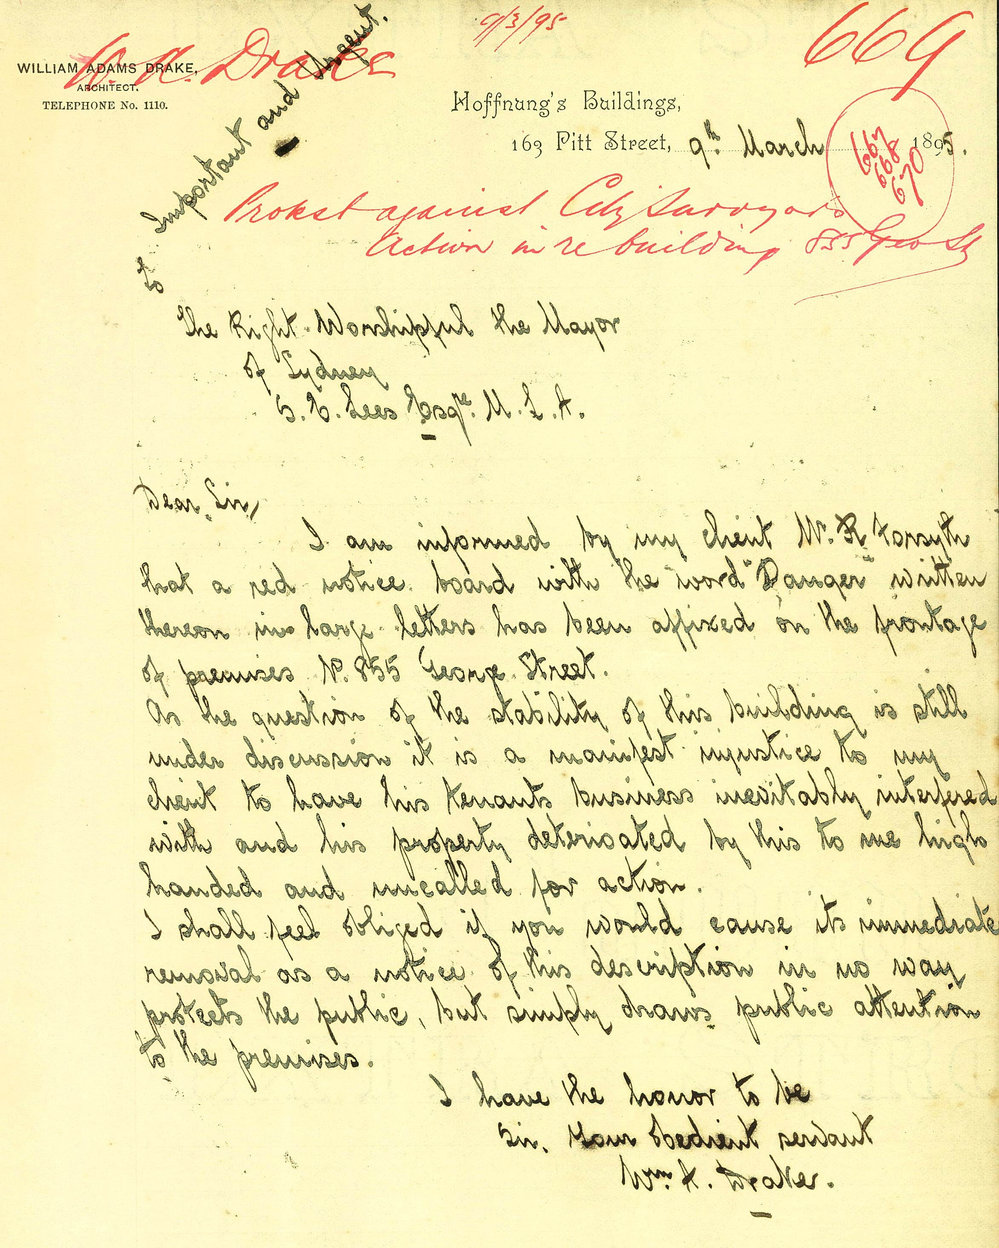 W. A. Drake
9/3/95
669
WILLIAM ADAMS DRAKE,
ARCHITECT.
TELEPHONE No. 1110.
Important and Urgent.
Hoffnung's Buildings,
163 Pitt Street, 9th March 1895.
667
668
670
Protest against City Surveyors
Action in re building 855 Geo St
To
The Right Worshipful the Mayor
of Sydney
S. E. Lees Esqre. M. L. A.
Dear Sir,
I am informed by my client Mr. R Forsyth
that a red notice board with the word "Danger" written
thereon in large letters has been affixed on the frontage
of premises No. 855 George Street.
As the question of the stability of this building is still
under discussion it is a manifest injustice to my
client to have his tenants business inevitably interfered
with and his property deterioated by this to me high
handed and uncalled for action.
I shall feel obliged if you would cause its immediate
removal as a notice of this description in no way
protects the public, but simply draws public attention
to the premises.
I have the honor to be
Sir, Your obedient servant
Wm. A. Drake.